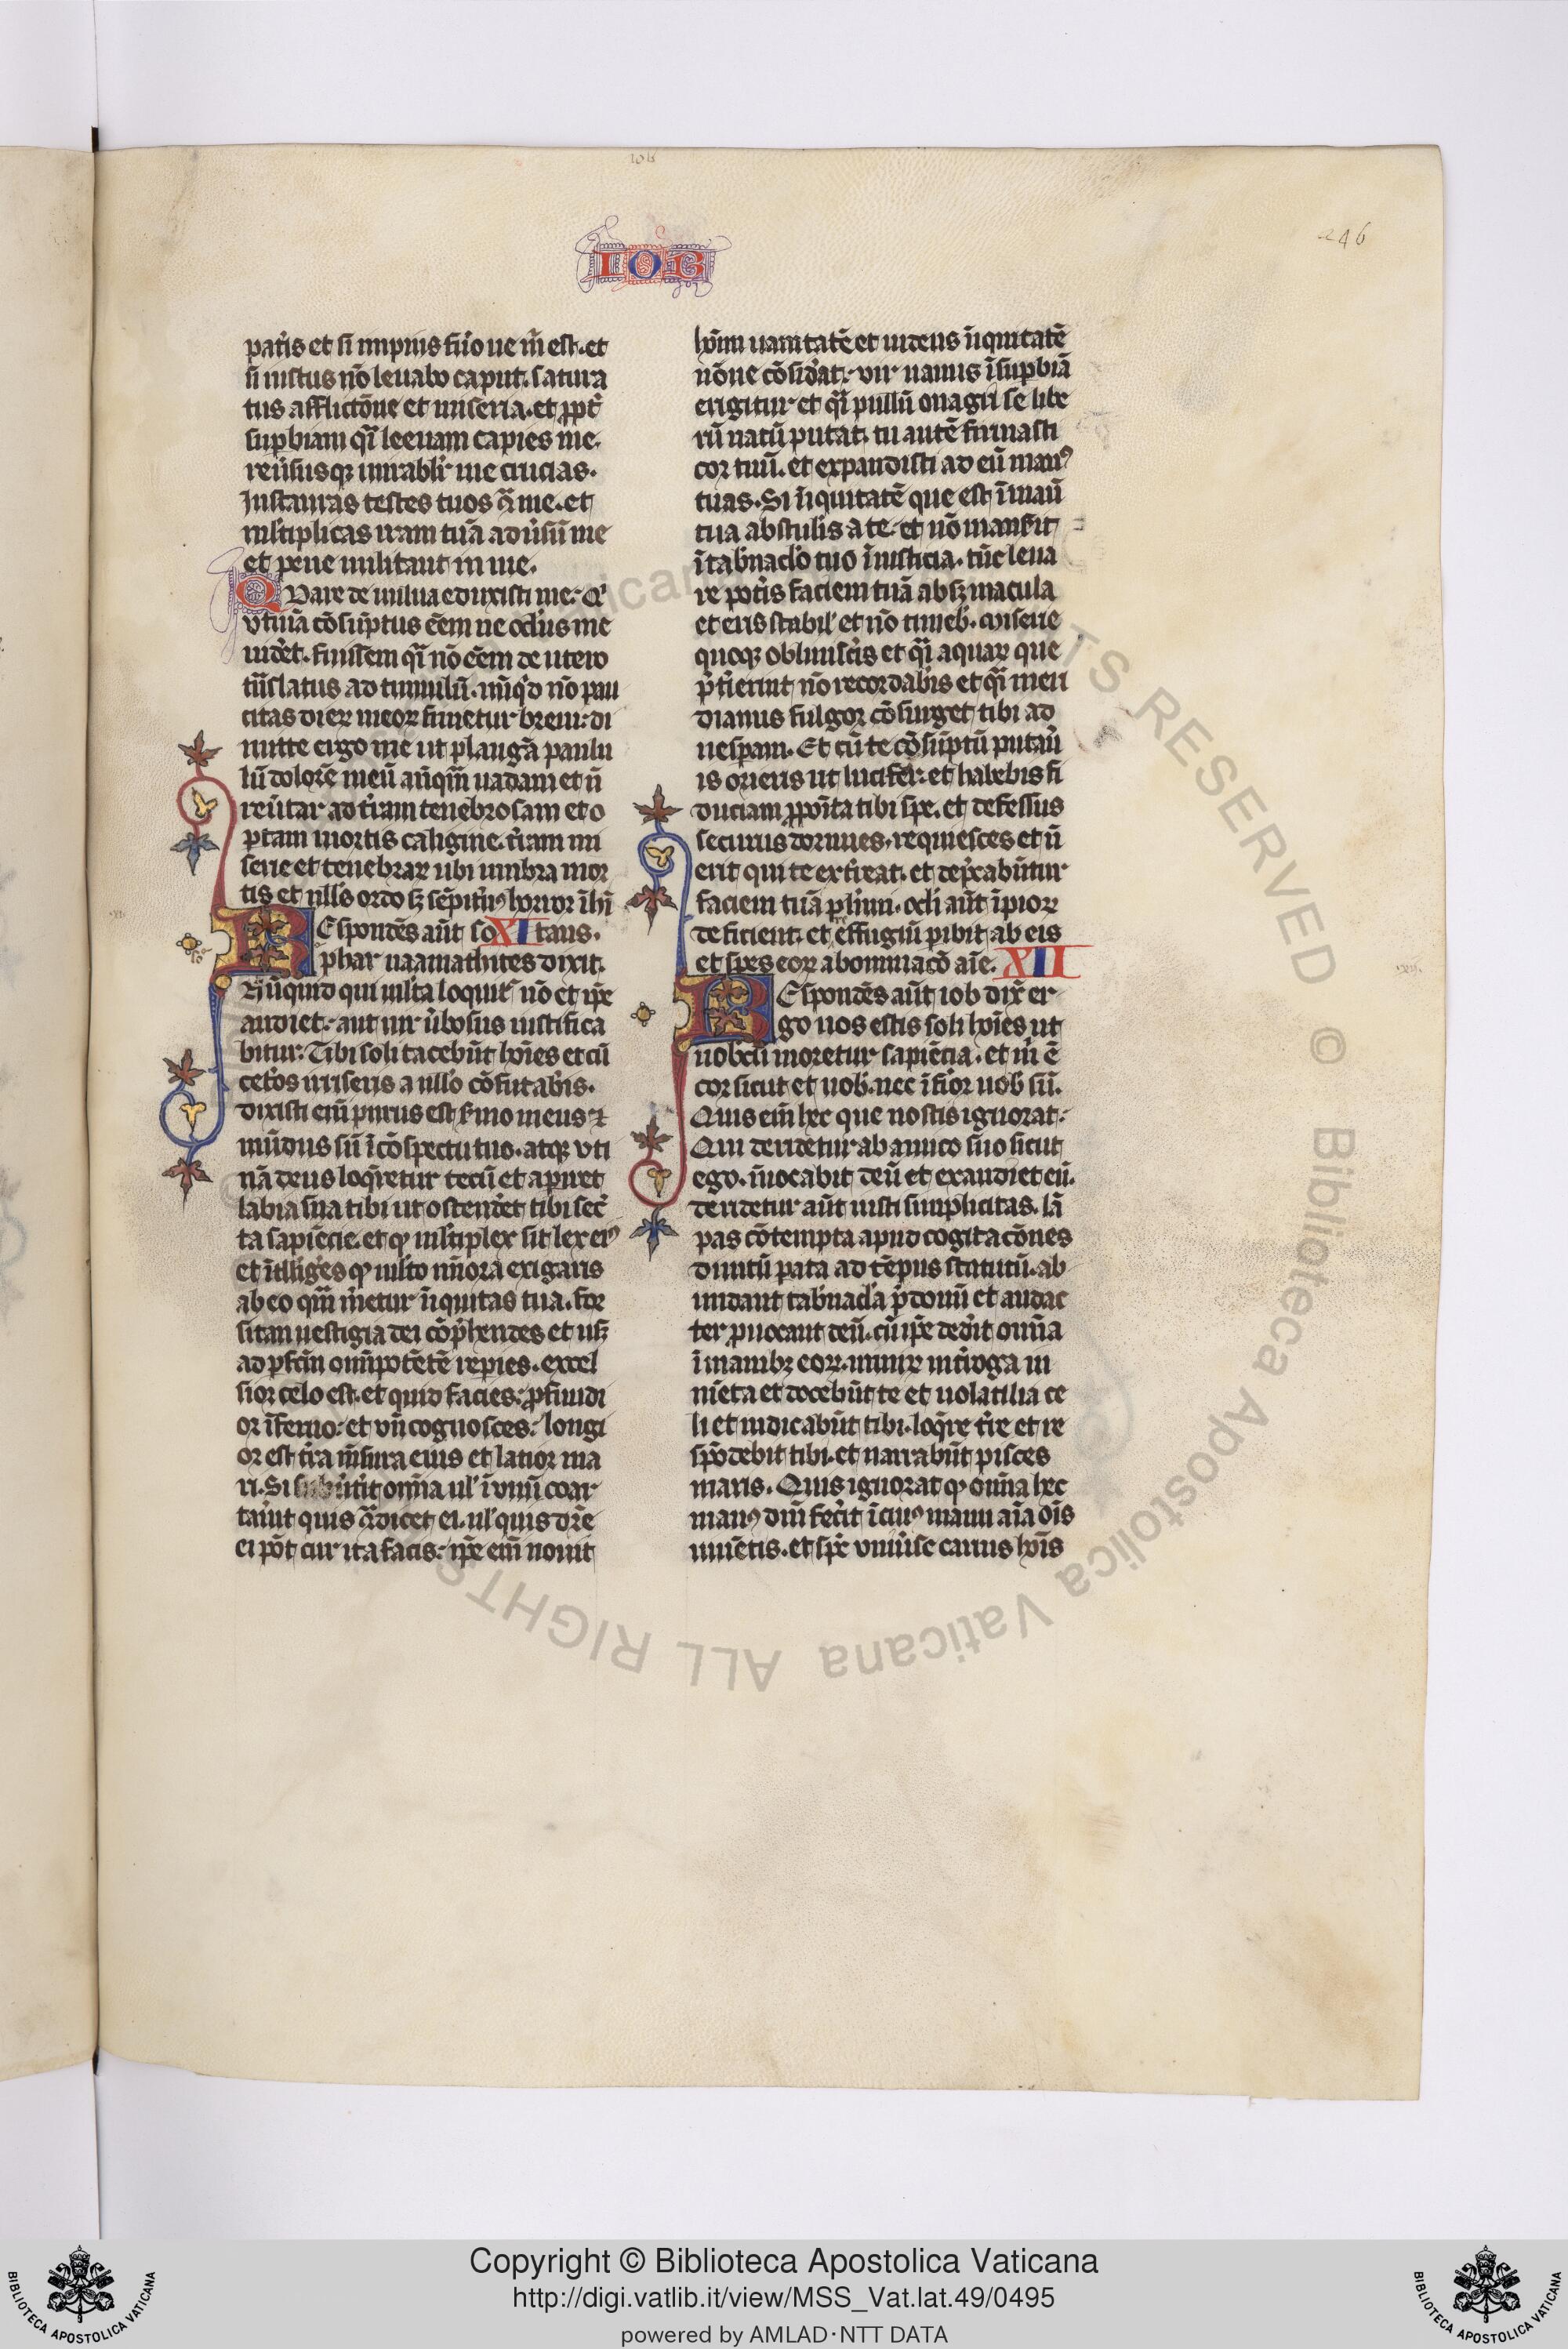 IOB
246
patis et si impius fuo ue m̃ est. et
si iustus nõ leuabo caput. satura
tus afflictõne et miseria. et ꝓpt̃
supbiam qĩ leenam capies me.
reũsusqꝫ mirablr̃ me crucias.
Instauras testes tuos ꝯ̃ me. et
multiplicas iram tuã aduũsũ me
et pene militant in me.
Quare de uulua eduxisti me. Qͥ
vtinã cõsũptus eẽm ne ocl̃us me
uidẽt. fuissem qĩ nõ eẽm de utero
tñslatus ad tumulũ. nũqͥd nõ pau
citas dieꝝ meoꝝ finietur breui: di
mitte ergo me ut plangã paulu
lũ dolorẽ meũ añqm̃ uadam et ñ
reũtar ad t̃ram tenebrosam et o
ptam mortis caligine. t̃ram mi
serie et tenebraꝝ ubi umbra mor
tis et nll̃s ordo sꝫ sẽpit̃nꝰ horror ĩhĩ
Respondẽs aũt so XI tans.
phar naamathites dixit.
Nũquid qui ml̃ta loquitͬ nõ et ip̃e
audiet. aut uir ũbosus iustifica
bitur. Tibi soli tacebũt hoĩes et cũ
cet̃os irriseris a nullo cõfutab̃is.
dixisti eñi purus est ẜmo meus ⁊
mũdus sũ ĩ cõspectu tuo. atqꝫ vti
nã deus loqͣretur tecũ et apiret
labia sua tibi ut ostendẽt tibi sec̃
ta sapiẽcie. et qꝫ ml̃tiplex sit lex eiꝰ
et ĩtll̃iges qꝫ ml̃to mĩora exigaris
ab eo qm̃ m̃etur ĩiquitas tua. for
sitan uestigia dei cõp̃hendes et usqꝫ
ad pfc̃m omĩpotẽtẽ repies. excel
sior celo est. et quid facies: ꝓfundi
or ĩferno: et vñ cognosces: longi
or est t̃ra mẽsura eius et latior ma
ri. Si subũtit oñia ul̃ ĩ vnũ coar
tauit quis ꝯ̃dicet ei. ul̃ quis dr̃e
ei põt cur ita facis: ip̃e eñi nouit
hoĩm uanitatẽ et uidens ĩiquitatẽ
nõne cõsiďat. vir uanus ĩ supbiã
erigitur et qĩ pullũ onagri se libe
rũ natũ putat. tu autẽ firmasti
cor tuũ. et expandisti ad eũ manꝰ
tuas. Si ĩiquitatẽ que est ĩ manũ
tua abstulis a te. et nõ mansit
ĩ tab̃nacl̃o tuo ĩiusticia. tũc leua
re potis faciem tuã absqꝫ macula
et eris stabil̃ et nõ timeb̃. miserie
quoqꝫ obliuiscis et qĩ aquaꝝ que
p̃t̃ierint nõ recordab̃is et qĩ meri
dianus fulgor cõsurget tibi ad
uespam. Et cũ te cõsũptũ putaũ
is orieris ut lucifer. et habebis fi
duciam ꝓpoĩta tibi spe. et defossus
securus dormies. requiesces et ñ
erit qui te ext̃reat. et dep̃cabũtur
faciem tuã plimi. ocl̃i aũt ĩpioꝝ
deficient. et effugiũ pibit ab eis
et spes eoꝝ abominacõ aĩe. XII
Respondẽs aũt iob dix̃ er
go uos estis soli hoĩes ut
uobcũ moretur sapiẽcia. et m̃ ẽ
cor sicut et uob̃. nec ĩfior uob̃ sũ.
Quis eñi hec que nostis ignorat.
Qui deridetur ab amico suo sicut
ego. ĩuocabit deũ et exaudiet eũ.
deridetur aũt iusti simplicitas. lã
pas cõtempta apud cogitacõnes
diuitũ pata ad tẽpus statutũ. ab
undant tab̃nacl̃a p̃donũ et audac
ter ꝓuocant deũ. cũ ip̃e deďit oñia
ĩ manibꝫ eoꝝ. nimiꝝ int̃roga iu
mẽta et docebũt te et uolatilia ce
li et indicabũt tibi. loqͣre t̃re et re
spõdebit tibi. et narrabũt pisces
maris. Quis ignorat qꝫ oñia hec
manꝰ dñi fec̃it ĩ cuiꝰ manu aĩa oĩs
uiuẽtis. et sp̃c vniũse carnis hoĩs
Copyright © Biblioteca Apostolica Vaticana
http://digi.vatlib.it/view/MSS_Vat.lat.49/0495
powered by AMLAD·NTT DATA
BIBLIOTECA APOSTOLICA VATICANA
BIBLIOTECA APOSTOLICA VATICANA
© Biblioteca Apostolica Vaticana ALL RIGHTS RESERVED